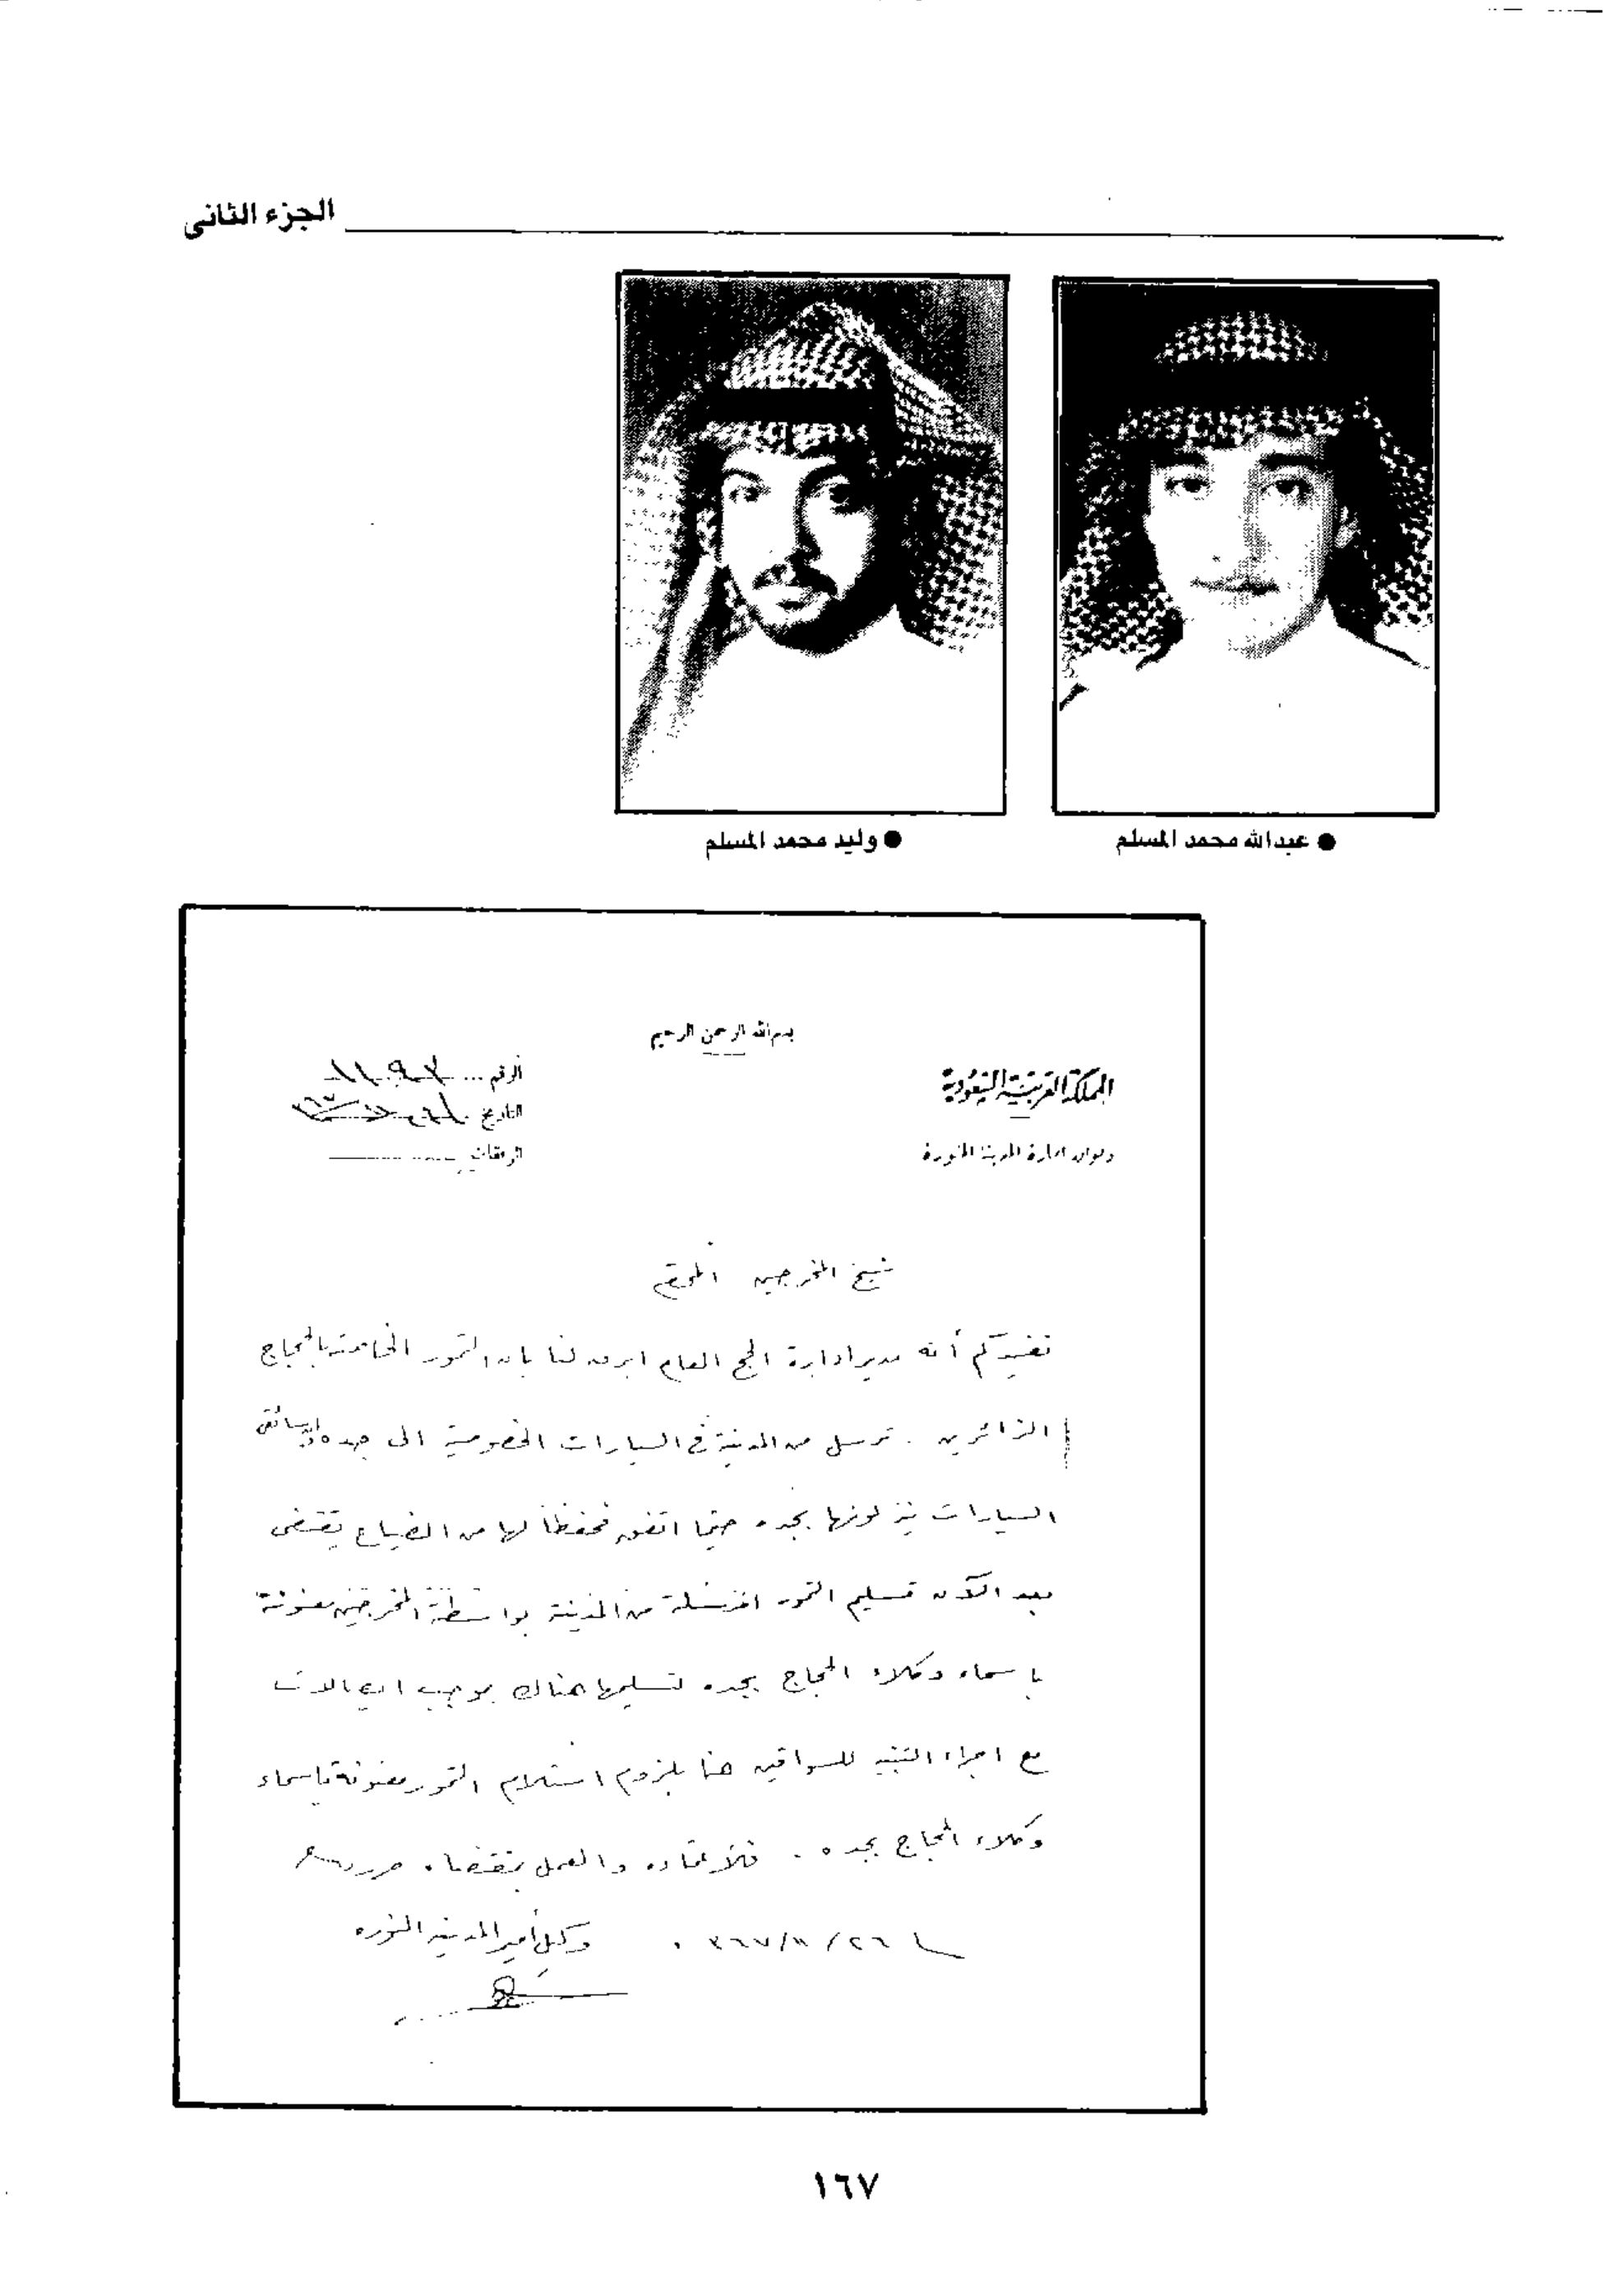 الجزء الثانى
● عبدالله محمد المسلم
● وليد محمد المسلم
بسم الله الرحمن الرحيم
المملكة العربية السعودية
ديوان امارة المدينة المنورة
الرقم
التاريخ
المرفقات
شيخ المخرجين المحترم
نفيدكم أنه مدير ادارة الحج العام ابرق لنا بان التمور الخاصة بالحجاج
الزائرين ترسل من المدينة في السيارات الخصوصية الى جده وسائق
السيارات ينزلونها بجده حيثما اتفق فحفظا لها من الضياع يقتضى
بعد الآن تسليم التمور المرسلة من المدينة بواسطة المخرجين معنونة
باسماء وكلاء الحجاج بجده لتسليمها هناك بموجب ايصالات
مع اجراء التنبيه للسواقين هنا بلزوم استلام التمور معنونة باسماء
وكلاء الحجاج بجده . فلاعتماده والعمل بمقتضاه حرر
٣٦٧/١١/٢٦ . وكيل أمير المدينة المنوره
١٦٧